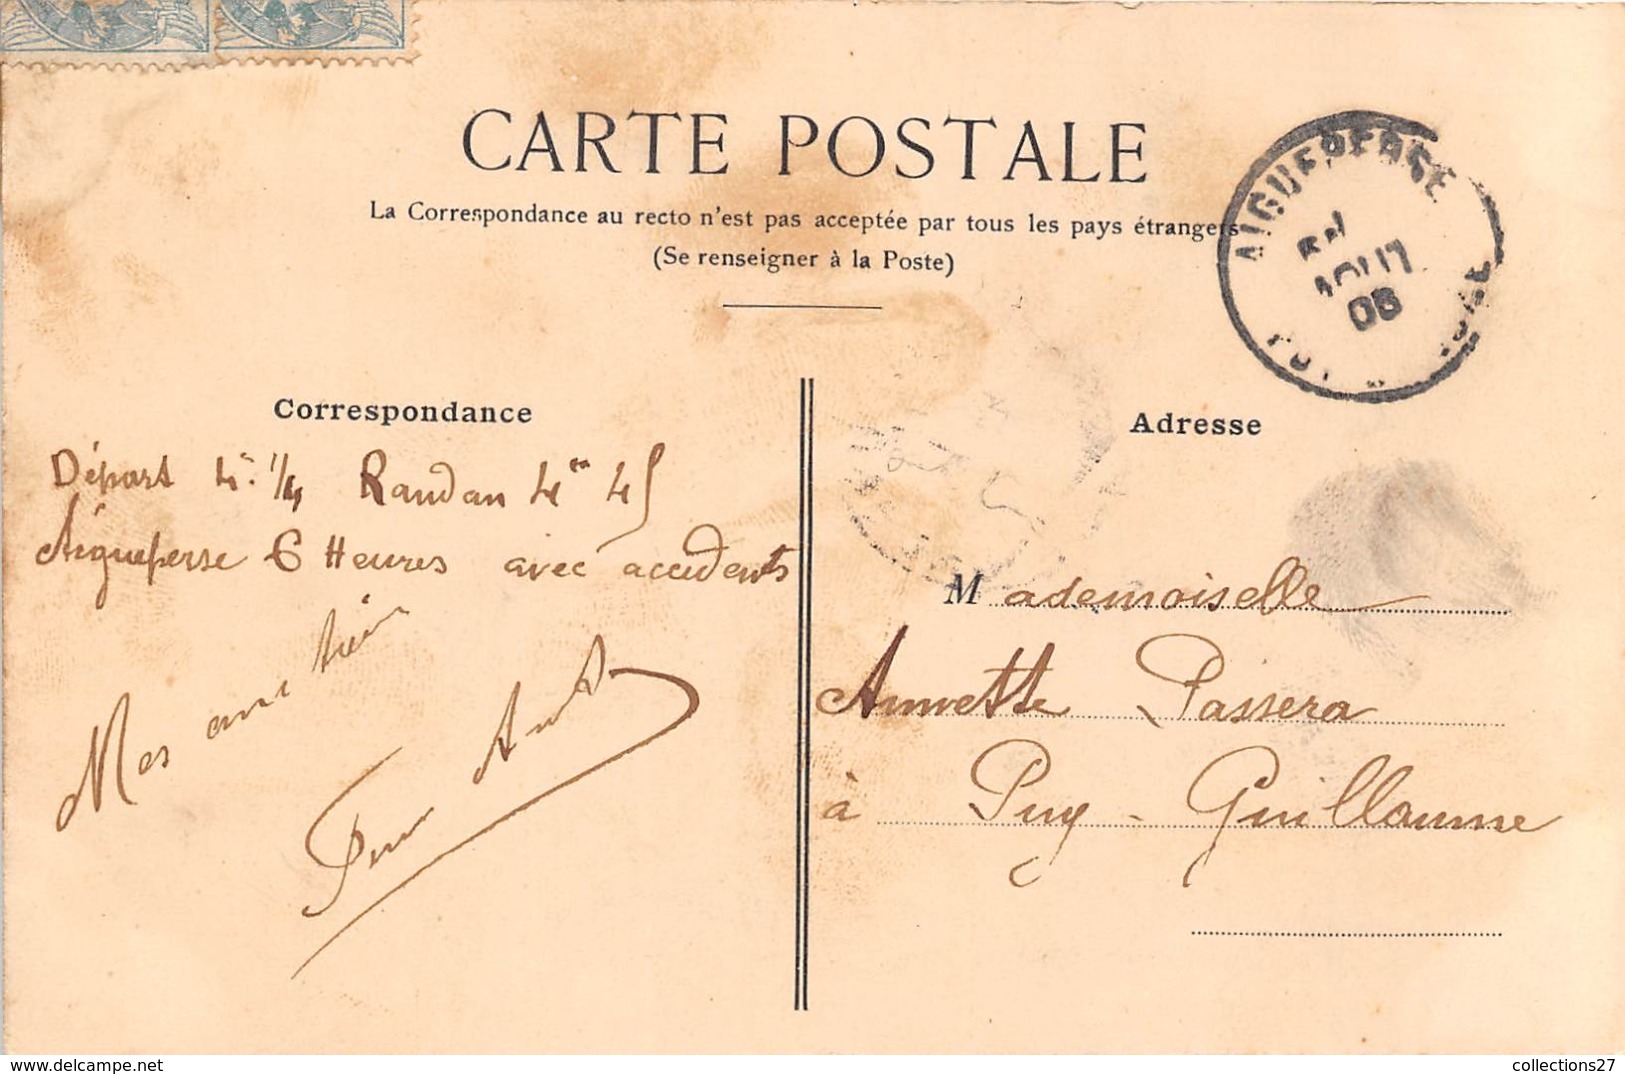 CARTE POSTALE
La Correspondance au recto n'est pas acceptée par tous les pays étrangers
(Se renseigner à la Poste)
AIGUEPERSE
AOUT
08
Correspondance
Départ 4h 1/4 Randan 4h 45
Aigueperse 6 Heures avec accidents
Mes
Adresse
Mademoiselle
Annette Passera
à Puy-Guillaume
collections27